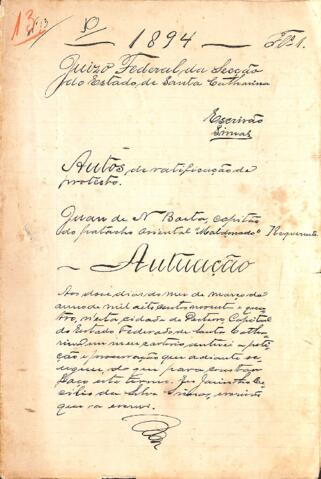 13
P
1894
Fl. 1.
Juizo Federal, da Secção
do Estado, de Santa Catharina
Escrivão
Simas
Autos, de ratificação de
protesto.
Juan de N. Basta, capitão
do patacho Oriental "Maldonado" Requerente
Autuação
Aos dois dias do mez de março do
anno de mil oitocentos noventa e qua
tro, nesta cidade do Desterro, Capital
do Estado Federado, de Santa Catha
rina em meu cartorio, autuei a peti
ção e procuração que adiante se
segue, do que para constar
faço este termo. Eu Jacintho Ce
cilio da Silva Simas, escrivão
que o escrevi.